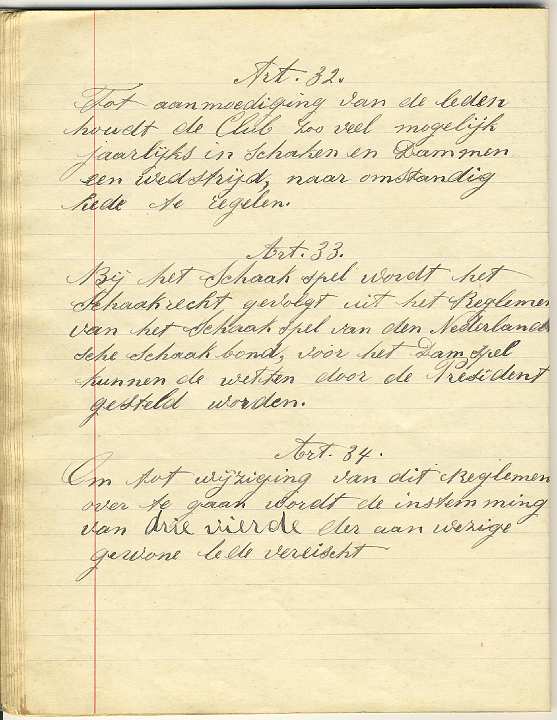 Art. 32.
Tot aanmoediging van de leden
houdt de Club zoo veel mogelijk
jaarlijks in Schaken en Dammen
een wedstrijd, naar omstandig
hede te regelen.
Art. 33.
Bij het Schaak spel wordt het
Schaakrecht gevolgt uit het Reglemen
van het Schaak spel van den Nederland
sche Schaak bond, voor het Dam spel
kunnen de wetten door de President
gesteld worden.
Art. 34.
Om tot wijziging van dit Reglemen
over te gaan wordt de instemming
van drie vierde der aan wezige
gewone lede vereischt